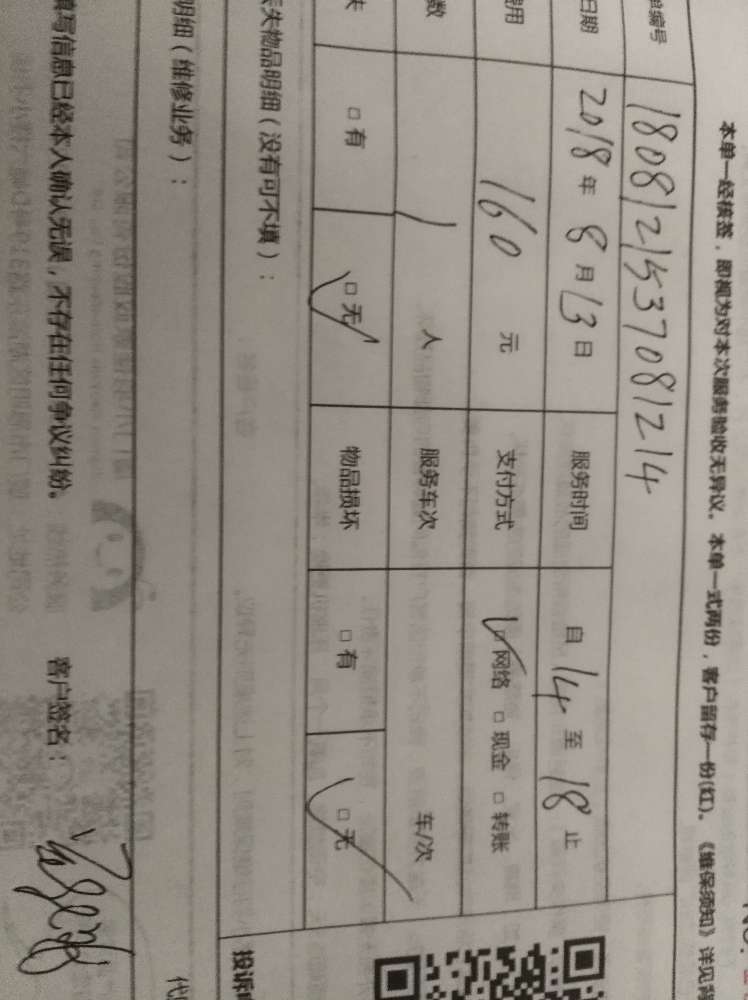 本单一经核签，即视为对本次服务验收无异议。本单一式两份，客户留存一份(红)。《维保须知》详见背
单编号 1808121537081214
日期 2018年8月13日 服务时间 自14至18止
费用 160元 支付方式 □网络 □现金 □转账
数 1人 服务车次 车/次
失 □有 □无 物品损坏 □有 □无
丢失物品明细（没有可不填）：
投诉
明细（维修业务）：
填写信息已经本人确认无误，不存在任何争议纠纷。 客户签名：